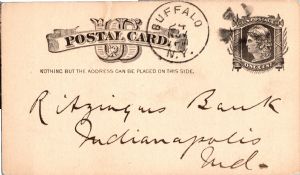 POSTAL CARD.
BUFFALO
N.Y.
ONE CENT
NOTHING BUT THE ADDRESS CAN BE PLACED ON THIS SIDE.
Ritzingers Bank
Indianapolis
Ind.